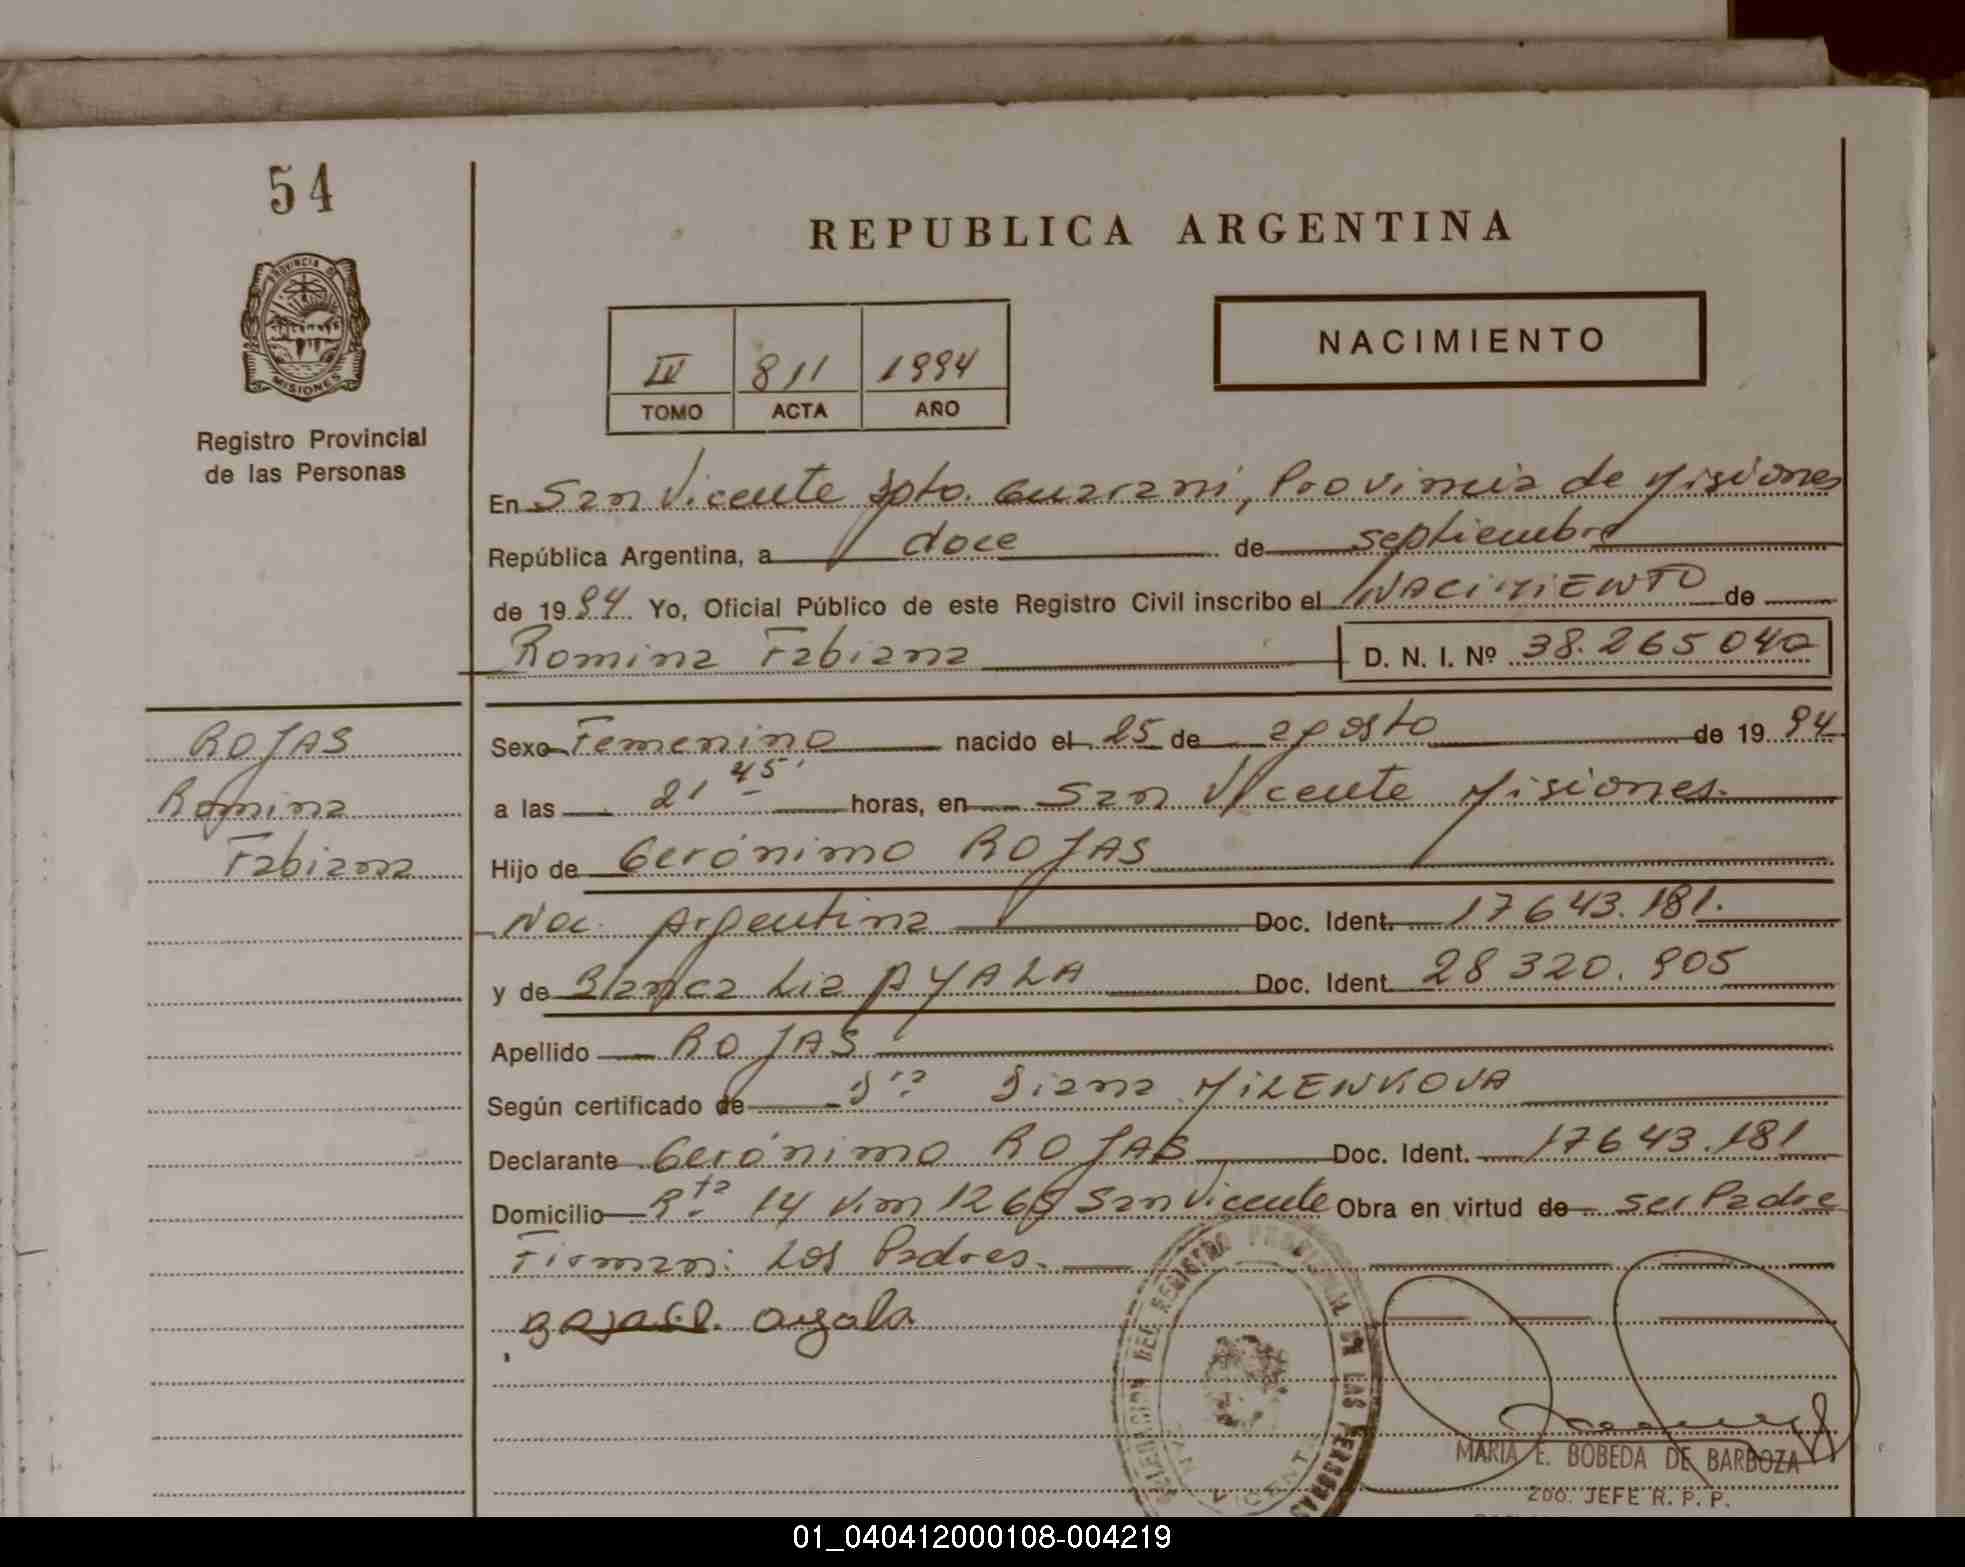 54
PROVINCIA DE
MISIONES
Registro Provincial
de las Personas
REPUBLICA ARGENTINA
IV 811 1994
TOMO ACTA AÑO
NACIMIENTO
En San Vicente Dpto. Guarani, Provincia de Misiones
República Argentina, a doce de septiembre
de 1994 Yo, Oficial Público de este Registro Civil inscribo el NACIMIENTO de
Romina Fabiana D. N. I. Nº 38.265040
ROJAS
Romina
Fabiana
Sexo Femenino nacido el 25 de agosto de 1994
a las 21 45' horas, en San Vicente Misiones.
Hijo de Gerónimo ROJAS
Nac. Argentina Doc. Ident. 17643.181.
y de Blanca Lia AYALA Doc. Ident. 28320.905
Apellido ROJAS
Según certificado de Dra Diana MILENKOVA
Declarante Gerónimo ROJAS Doc. Ident. 17643.181
Domicilio Rta 14 Km 1265 San Vicente Obra en virtud de ser Padre
Firman: Los Padres.
ayala
DEL REGISTRO PROVINCIAL DE LAS PERSONAS
MARIA E. BOBEDA DE BARBOZA
2DO. JEFE R. P. P.
01_040412000108-004219